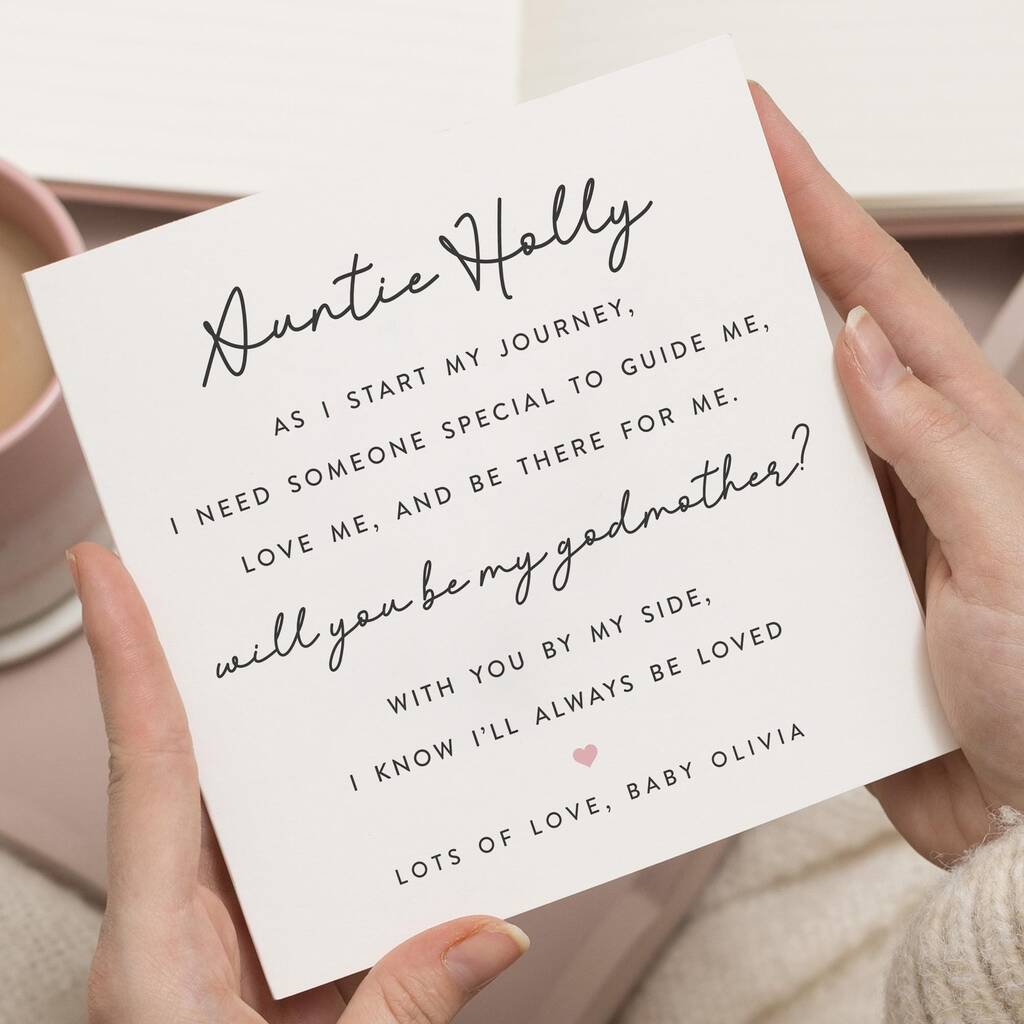 Auntie Holly
AS I START MY JOURNEY,
I NEED SOMEONE SPECIAL TO GUIDE ME,
LOVE ME, AND BE THERE FOR ME.
will you be my godmother?
WITH YOU BY MY SIDE,
I KNOW I'LL ALWAYS BE LOVED
LOTS OF LOVE, BABY OLIVIA